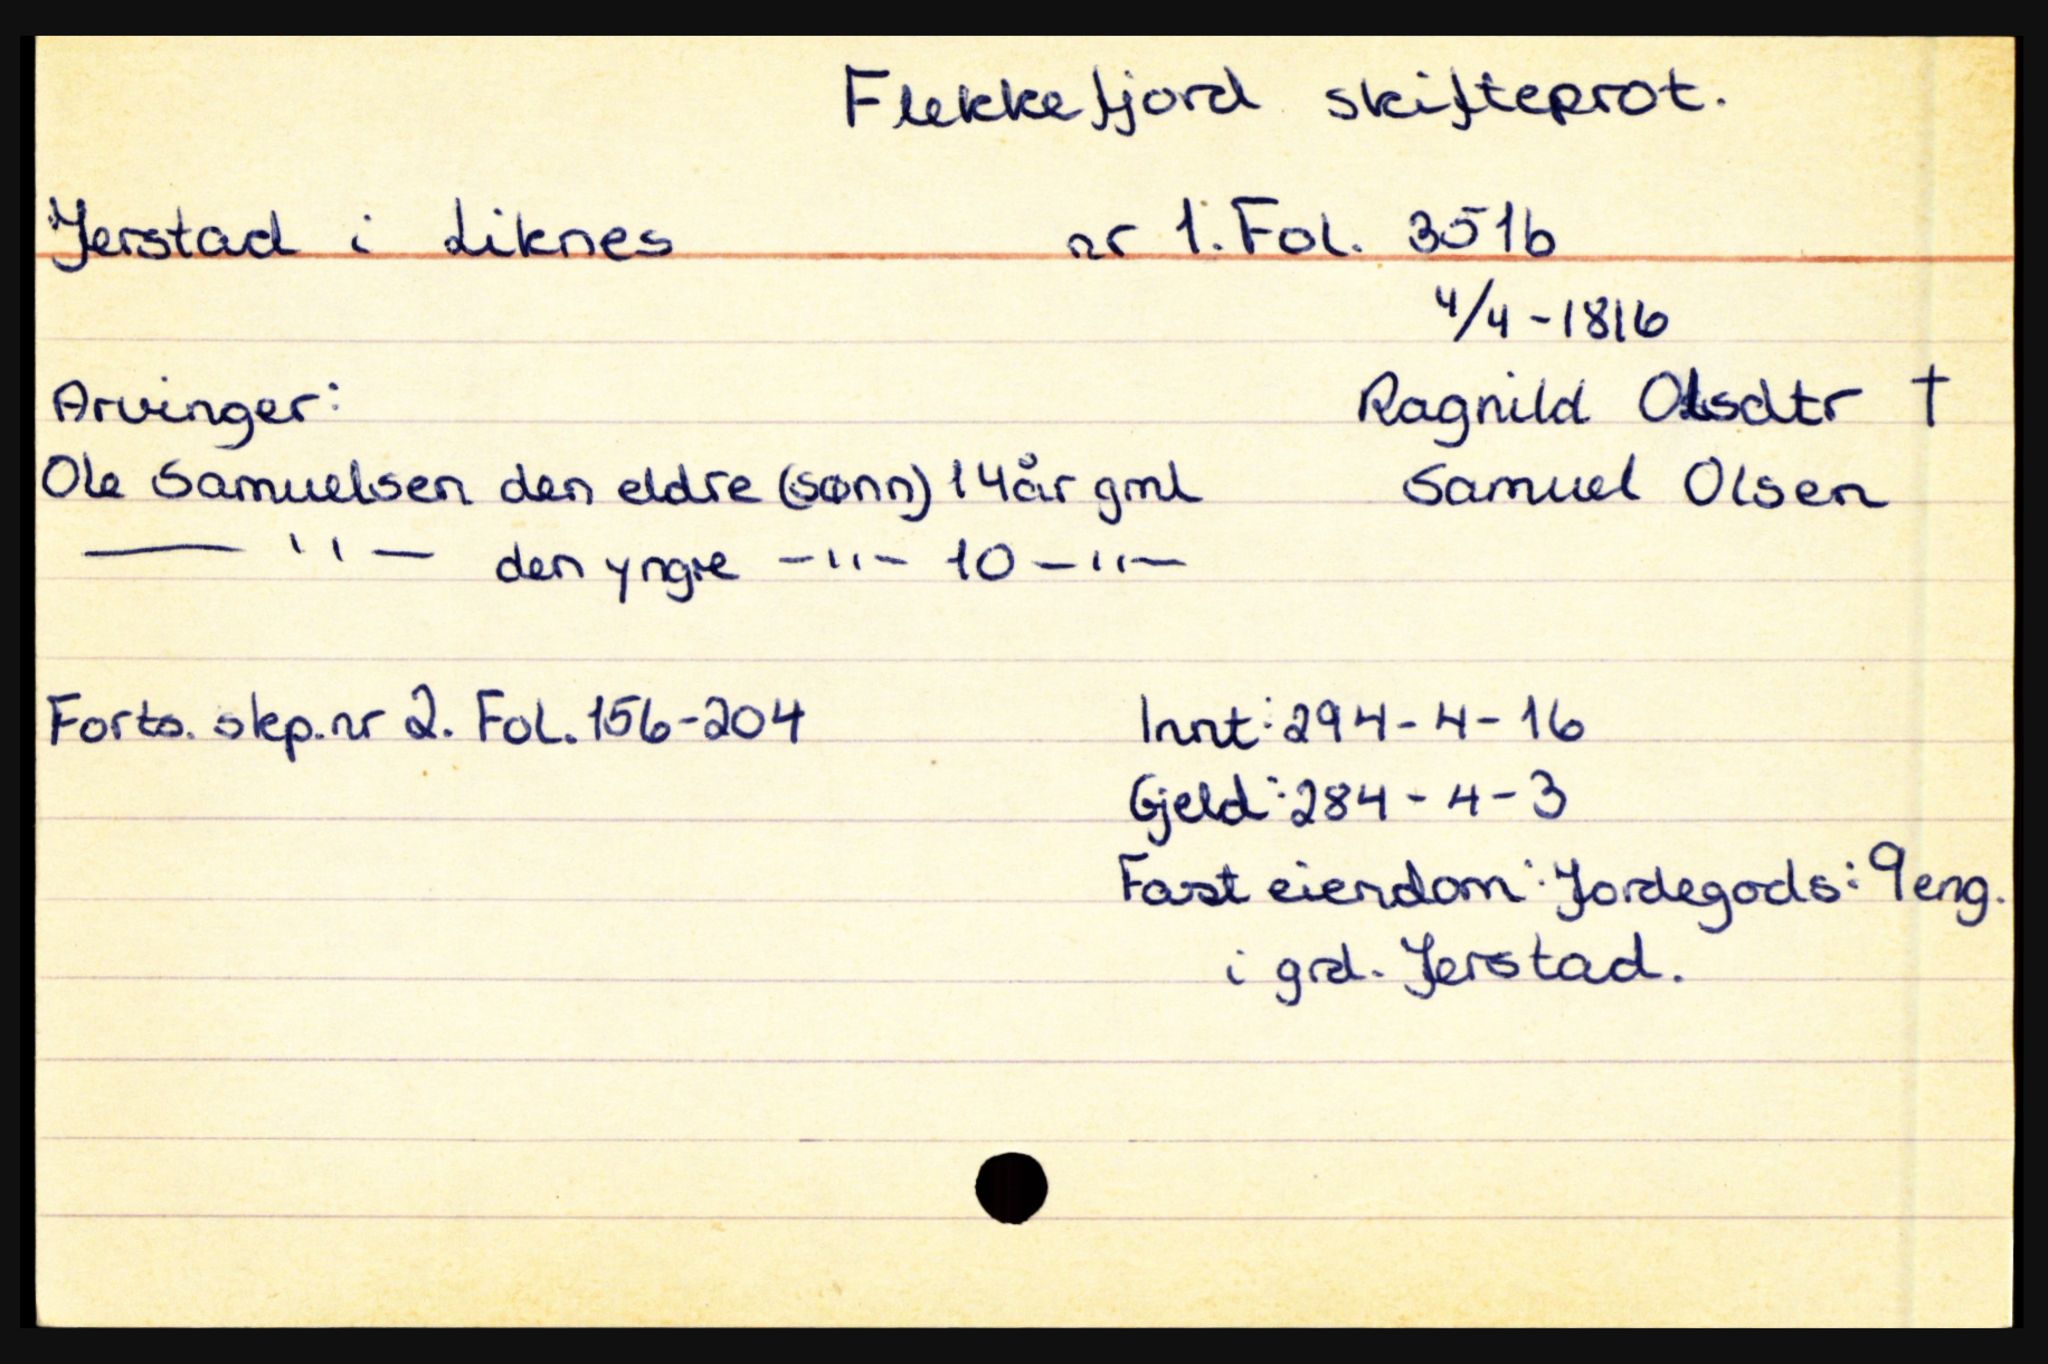 Flekkefjord skifteprot.
Jerstad i Liknes nr 1. Fol. 351b
4/4-1816
Arvinger: Ragnild Olsdtr †
Ole Samuelsen den eldre (sønn) 14år gml Samuel Olsen
— " — den yngre -"- 10 -"-
Forts. skp.nr 2. Fol. 156-204 Innt: 294-4-16
Gjeld: 284-4-3
Fast eiendom: Jordegods: 9 eng.
i grd. Jerstad.